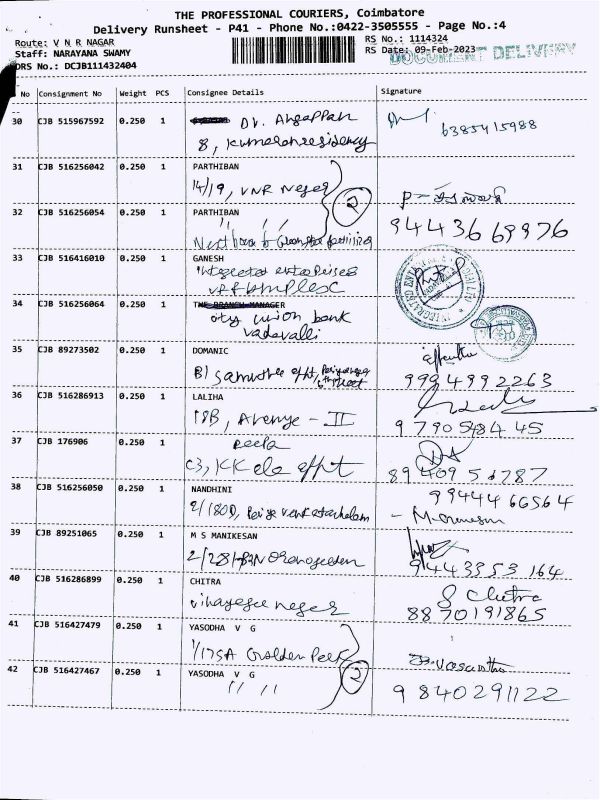 THE PROFESSIONAL COURIERS, Coimbatore
Delivery Runsheet - P41 - Phone No.:0422-3505555 - Page No.:4
Route: V N R NAGAR
RS No.: 1114324
Staff: NARAYANA SWAMY
RS Date: 09-Feb-2023
DOCUMENT DELIVERY
DRS No.: DCJB111432404
No Consignment No Weight PCS Consignee Details Signature
30 CJB 515967592 0.250 1 Dr. Angappan
8, Kumaran residency 6385415988
31 CJB 516256042 0.250 1 PARTHIBAN
14/19, VNR Nager
2
32 CJB 516256054 0.250 1 PARTHIBAN
" " 94436 69976
Next to
33 CJB 516416010 0.250 1 GANESH
Integrated enterprises
complex
34 CJB 516256064 0.250 1 THE BRANCH MANAGER
city union bank
vadavalli
35 CJB 89273502 0.250 1 DOMANIC
B1 appt, 9994992263
36 CJB 516286913 0.250 1 LALIHA
18B, Avenue - II 9790548445
37 CJB 176906 0.250 1
C3, KK appt 8940956787
38 CJB 516256050 0.250 1 NANDHINI 9944466564
2/180D, Periya venkatachalam
39 CJB 89251065 0.250 1 M S MANIKESAN
9443353164
40 CJB 516286899 0.250 1 CHITRA Chitra
vinayager nager 8870191865
41 CJB 516427479 0.250 1 YASODHA V G
1/175A Golden Peek
2 Vasantha
42 CJB 516427467 0.250 1 YASODHA V G
" " 9840291122